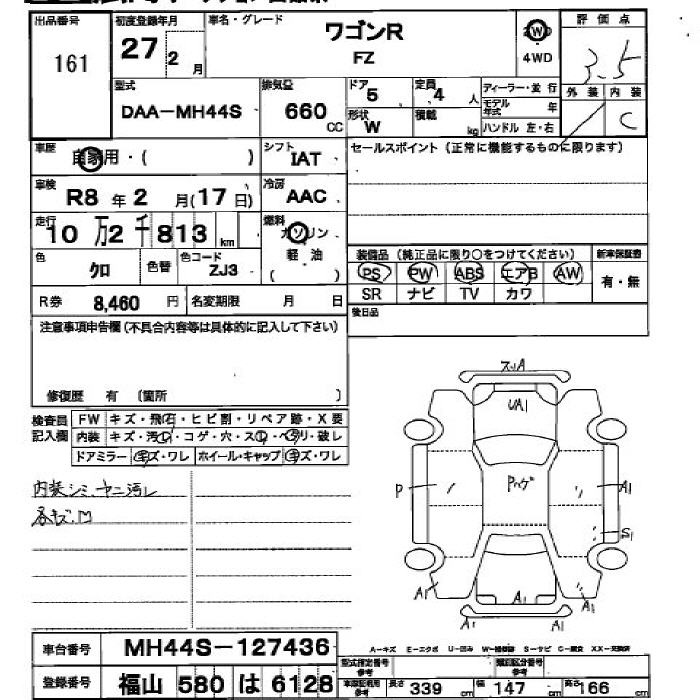 出品番号
161
初度登録年月
27 2 月
車名・グレード
ワゴンR
FZ
2WD
4WD
評価点
3.5
外装 内装
C
型式
DAA-MH44S
排気量
660 CC
ドア 5
形状 W
定員 4 人
積載 kg
ディーラー・並行
モデル年式 年
ハンドル 左・右
車歴
自家用・( )
シフト
IAT
セールスポイント (正常に機能するものに限ります)
車検
R8 年 2 月(17日)
冷房
AAC
走行
10万2千813 km
燃料
ガソリン
軽油
( )
色
クロ
色替
色コード
ZJ3
装備品 (純正品に限り○をつけてください)
PS PW ABS エアB AW
SR ナビ TV カワ
新車保証書
有・無
R券 8,460 円
名変期限 月 日
後日品
注意事項申告欄 (不具合内容等は具体的に記入して下さい)
修復歴 有 (箇所 )
検査員
記入欄
FW キズ・飛石・ヒビ割・リペア跡・X要
内装 キズ・汚レ・コゲ・穴・スレ・ヘタリ・破レ
ドアミラー キズ・ワレ ホイール・キャップ キズ・ワレ
内装シミ、ヤニ汚レ
各キズ、M
スリA
UA1
P
A1
S1
A1
A1
A1
A1
A1
車台番号
MH44S-127436
登録番号
福山 580 は 6128
A-キズ E-エクボ U-凹み W-補修跡 S-サビ C-腐食 XX-交換済
型式指定番号
参考
類別区分番号
参考
車庫証明用
参考
長さ 339 cm 幅 147 cm 高さ 166 cm